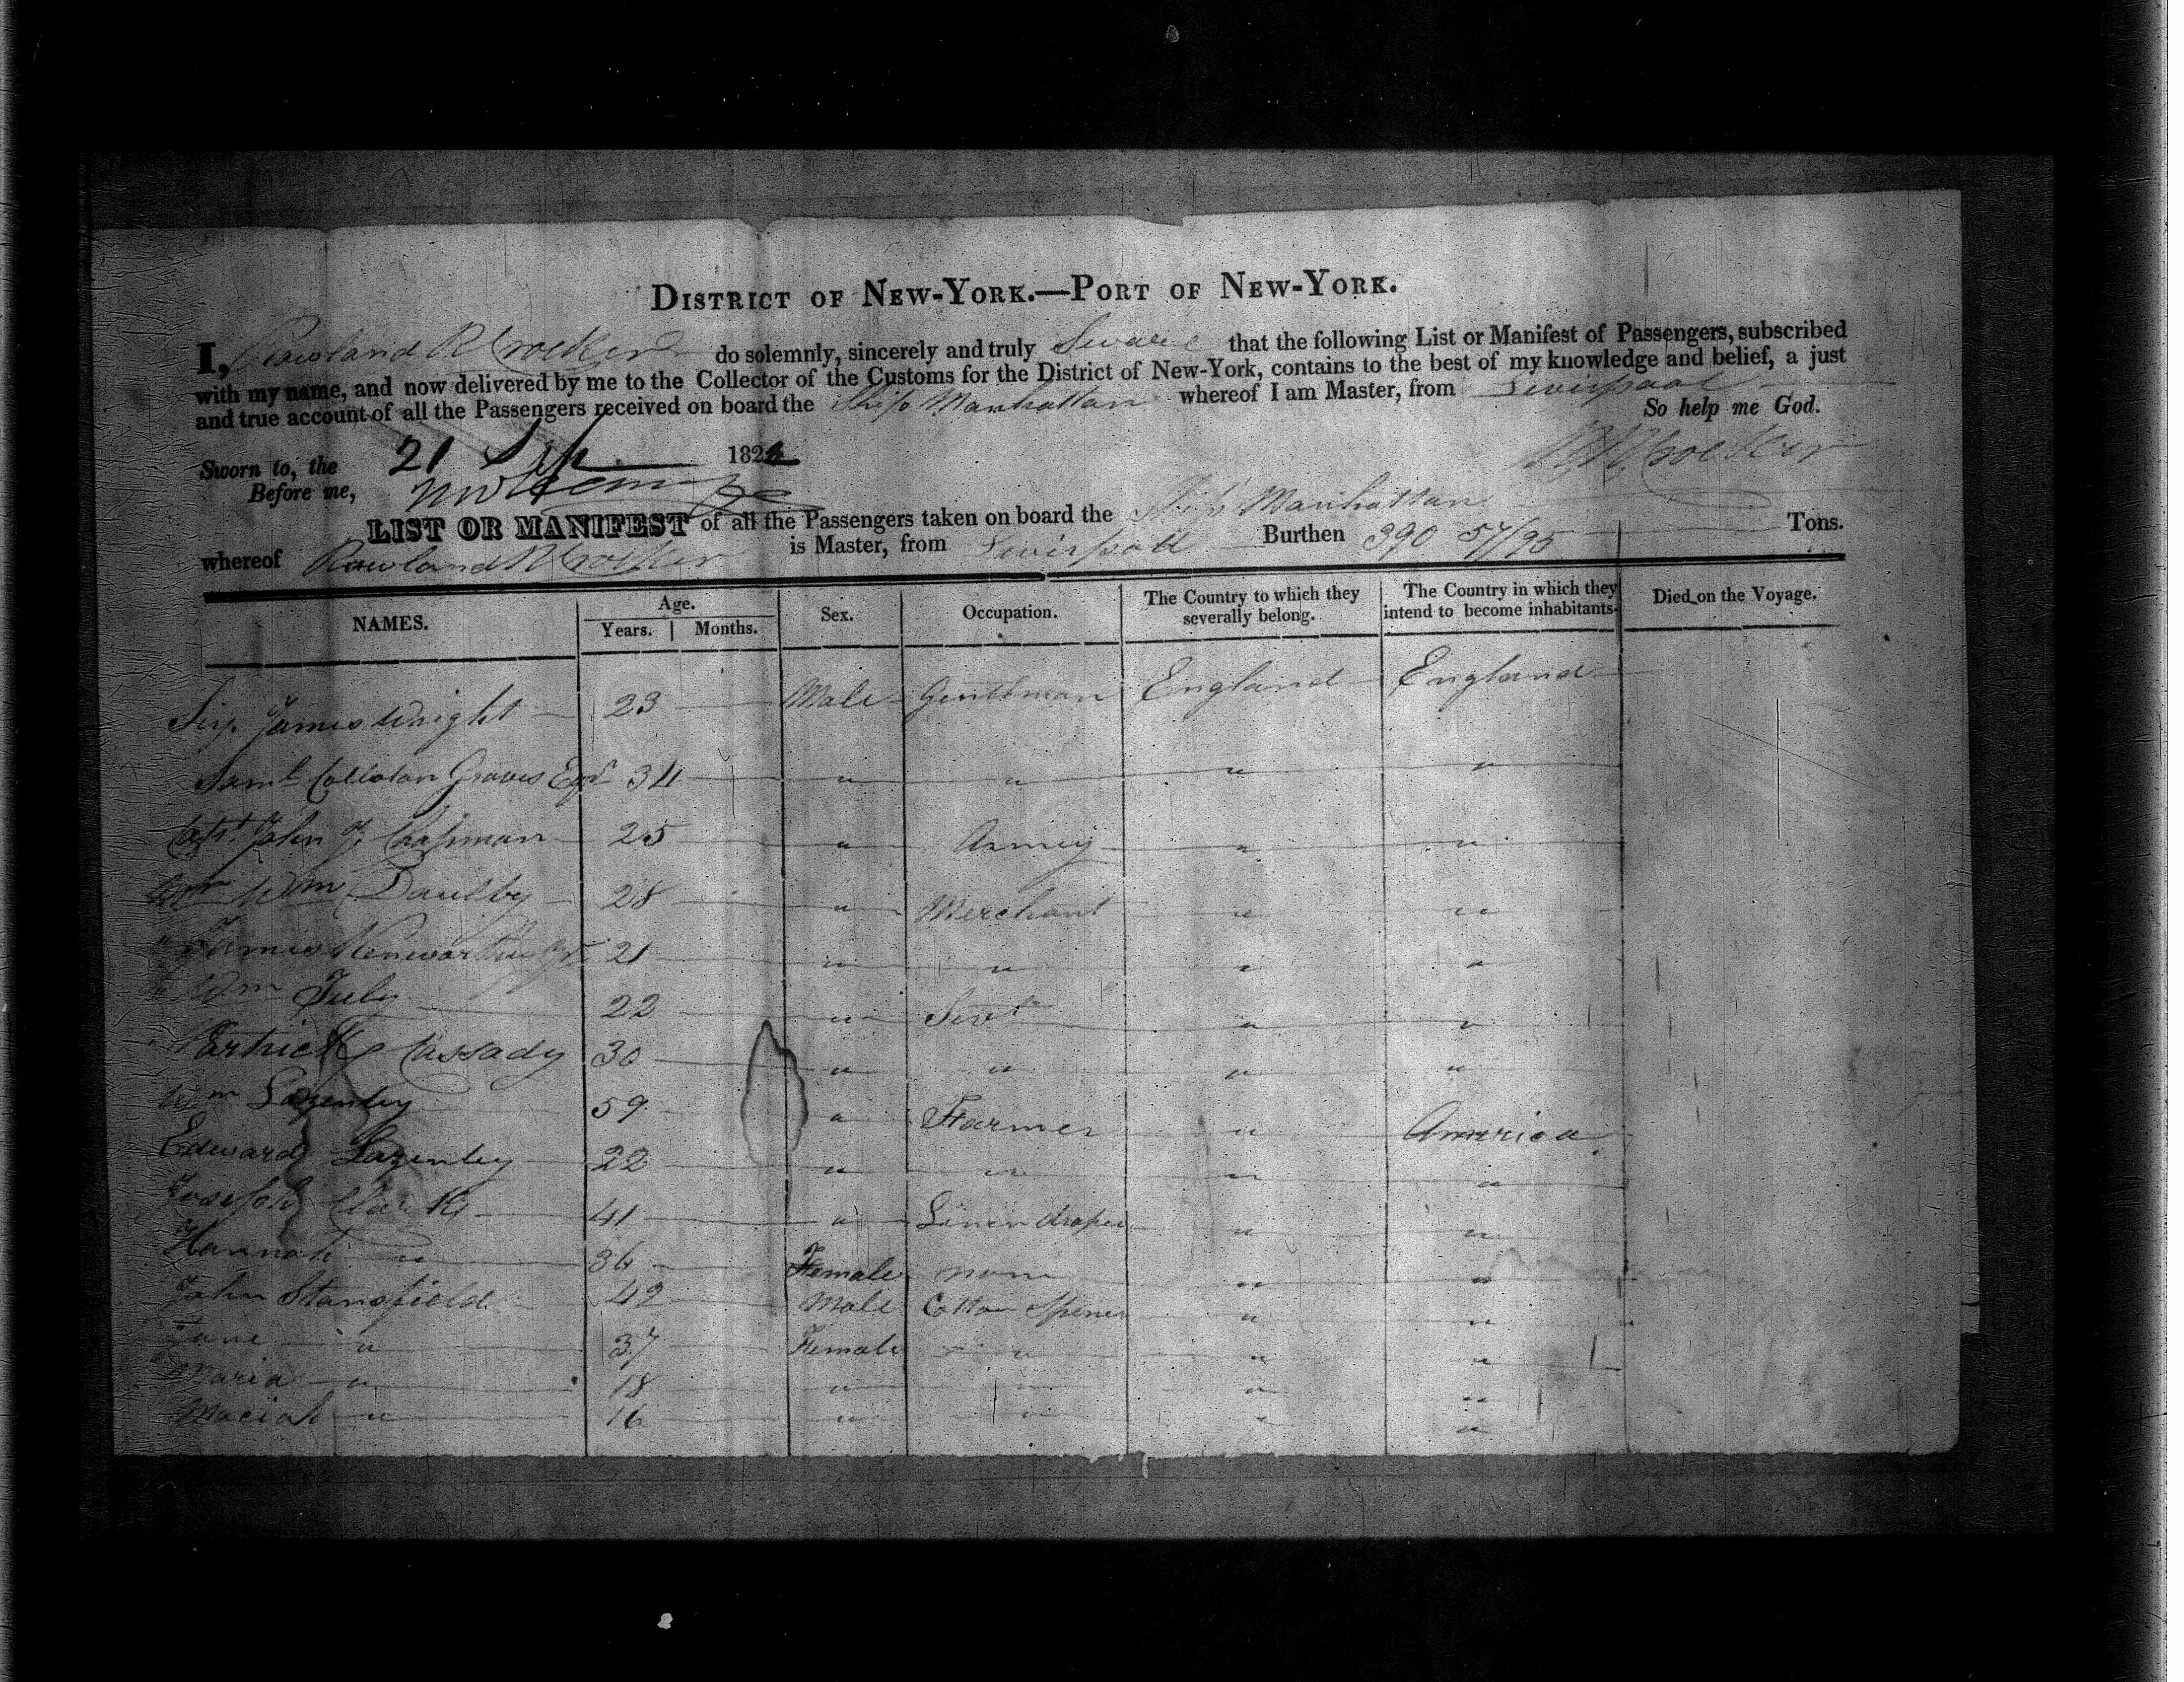 DISTRICT OF NEW-YORK.—PORT OF NEW-YORK.
I, Rowland R Crocker do solemnly, sincerely and truly Sware that the following List or Manifest of Passengers, subscribed
with my name, and now delivered by me to the Collector of the Customs for the District of New-York, contains to the best of my knowledge and belief, a just
and true account of all the Passengers received on board the Ship Manhattan whereof I am Master, from Liverpool
So help me God.
Sworn to, the 21 Sep. 182
R R Crocker
Before me,
LIST OR MANIFEST of all the Passengers taken on board the Ship Manhattan
whereof Rowland R Crocker is Master, from Liverpool Burthen 390 57/95 Tons.
NAMES. Age. Years. Months. Sex. Occupation. The Country to which they severally belong. The Country in which they intend to become inhabitants. Died on the Voyage.
James Wright 23 Male Gentleman England England
Saml Graves Esqr 34 " " " "
Capt. John J. Chapman 25 " Armey " "
Mr Wm Daulby 28 " Merchant " "
" James Kenworthy 21 " " " "
" Wm July 22 " Servt " "
Partrick Cassady 30 " " " "
Wm Lazenby 59 " Farmer " America
Edward Lazenby 22 " " " "
Joseph Clark 41 " Linen draper " "
Hannah " 36 Female none " "
John Stansfield 42 Male Cotton Spiner " "
Jane " 37 Female " " "
Maria " 18 " " " "
Maciah " 16 " " " "